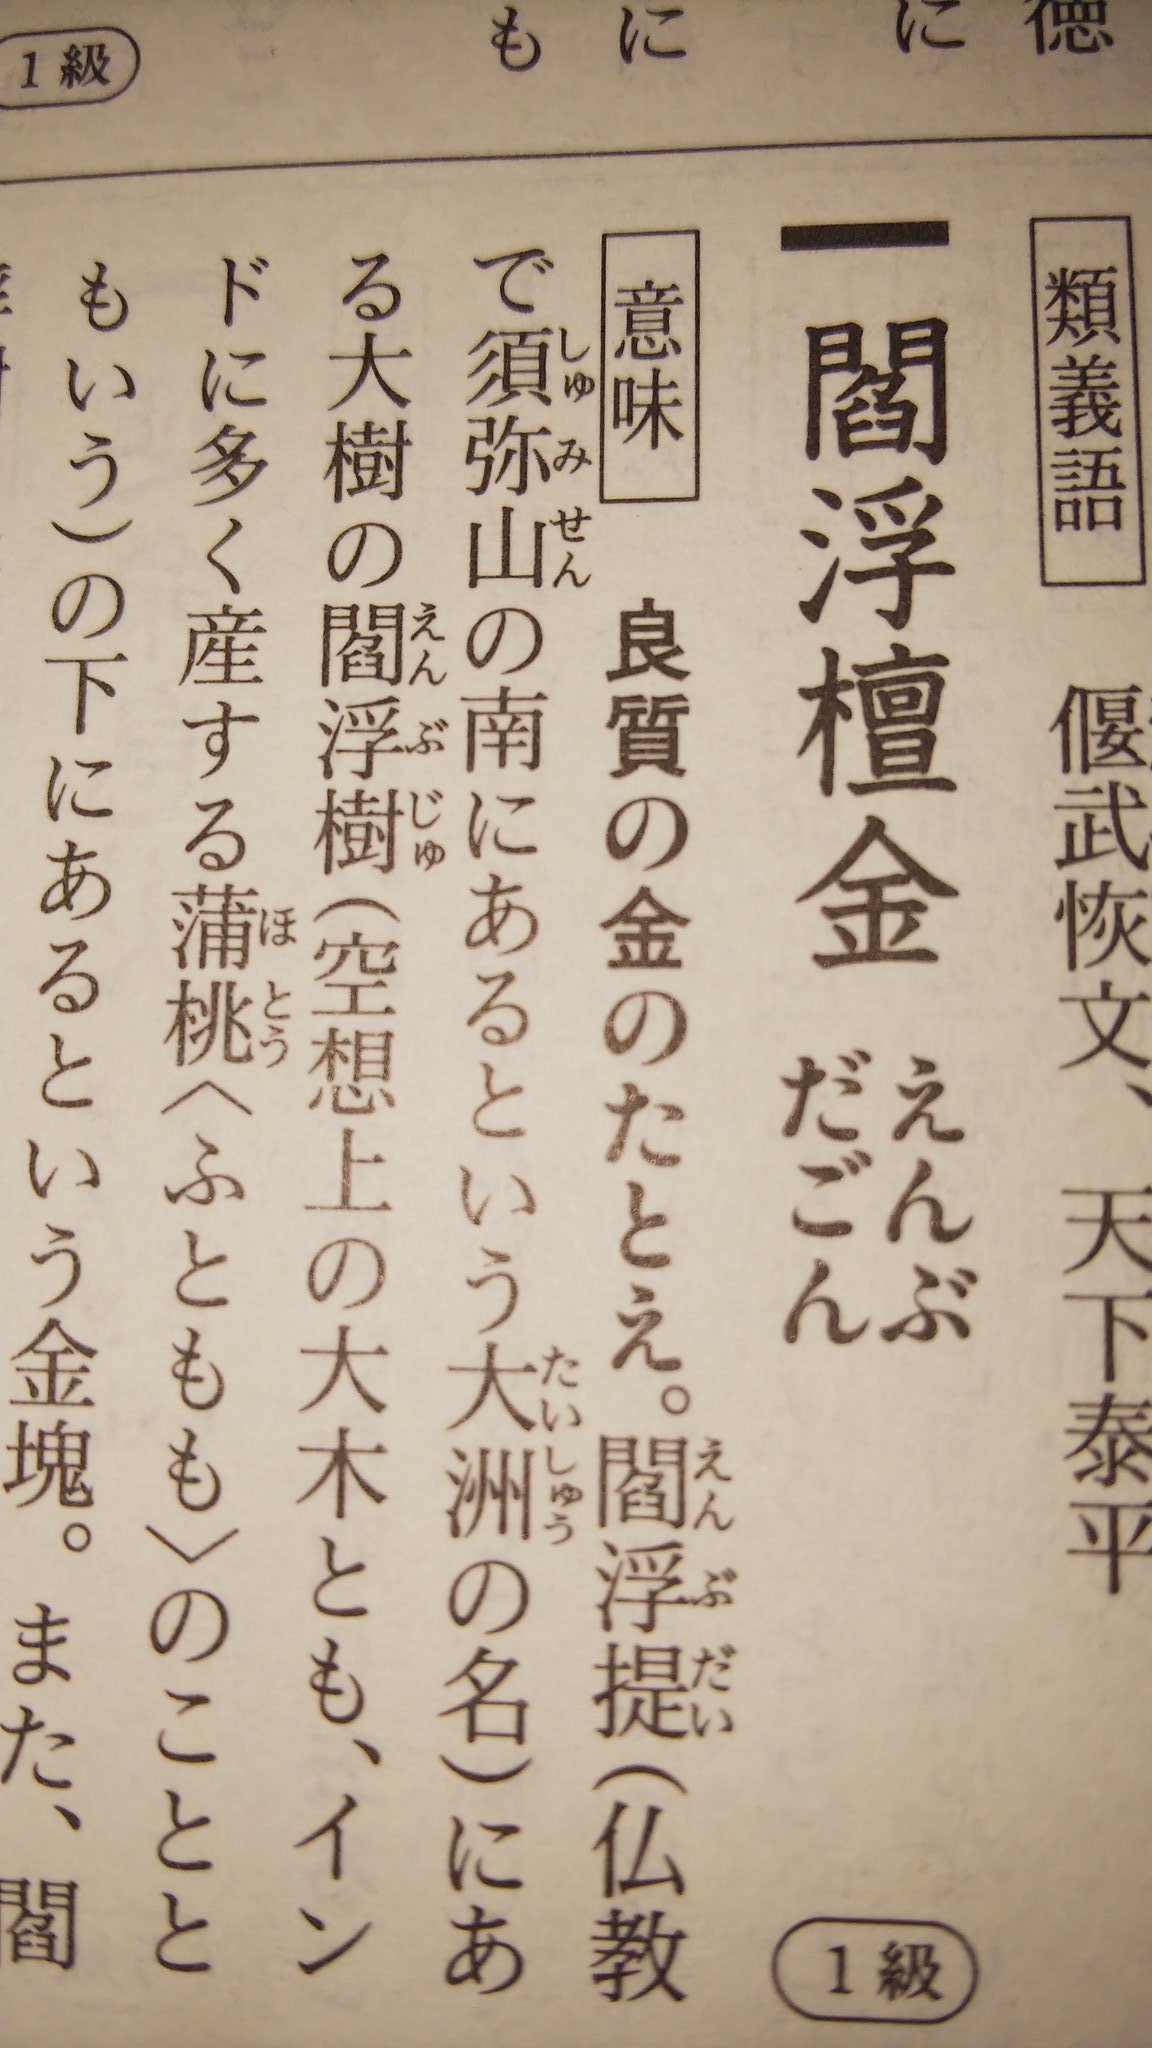 徳
に
に
も
1級
類義語
偃武恢文、天下泰平
閻浮檀金
えんぶ
だごん
1級
意味 良質の金のたとえ。閻浮提(仏教
えんぶだい
で須弥山の南にあるという大洲の名)にあ
しゅみせん たいしゅう
る大樹の閻浮樹(空想上の大木とも、イン
えんぶじゅ
ドに多く産する蒲桃〈ふともも〉のことと
ほとう
もいう)の下にあるという金塊。また、閻